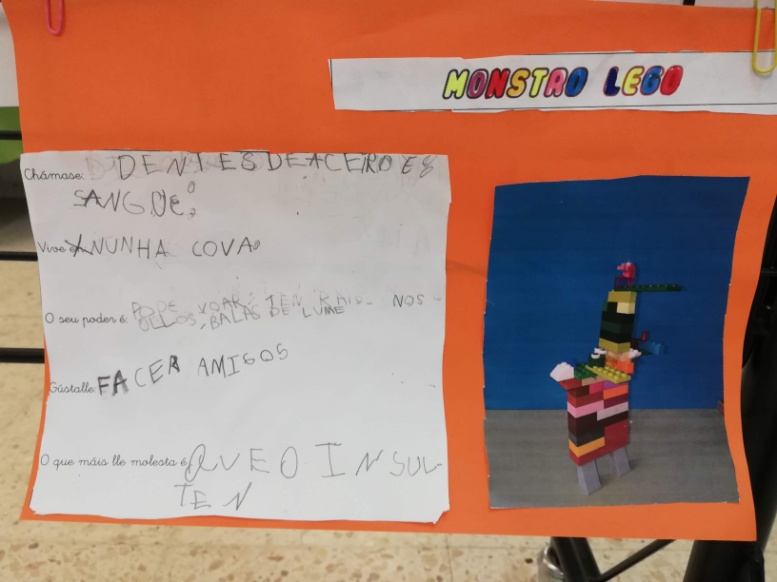 MONSTRO LEGO
Chámase: DENTES DE ACEIRO E
SANGUE
Vive NUNHA COVA
O seu poder é: PODE VOAR, TEN RAIOS NOS
OLLOS, BALAS DE LUME
Gústalle: FACER AMIGOS
O que máis lle molesta é: QUE O INSUL-
TEN